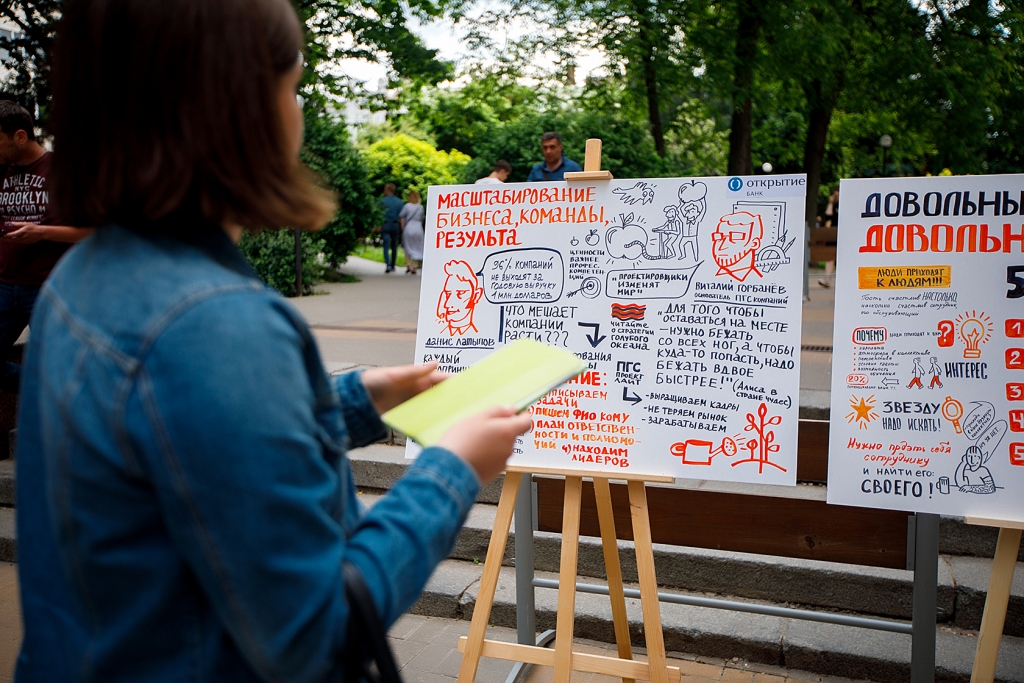 ATHLETIC
BROOKLYN
МАСШТАБИРОВАНИЕ
БИЗНЕСА, КОМАНДЫ,
РЕЗУЛЬТА
ОТКРЫТИЕ
БАНК
96% КОМПАНИЙ
НЕ ВЫХОДЯТ ЗА
ГОДОВУЮ ВЫРУЧКУ
1 МЛН ДОЛАРОВ
ДАНИС ЛАТЫПОВ
ЦЕННОСТИ
ВАЖНЕЕ
ПРОФЕС.
КОМПЕТЕН
ЦИЙ
"ПРОЕКТИРОВЩИКИ
ИЗМЕНЯТ
МИР"
ВИТАЛИЙ ГОРБАНЁВ
ОСНОВАТЕЛЬ ПГС КОМПАНИЙ
ЧТО МЕШАЕТ
КОМПАНИИ
РАСТИ???
ЧИТАЙТЕ
О СТРАТЕГИИ
ГОЛУБОГО
ОКЕАНА
"ДЛЯ ТОГО ЧТОБЫ
ОСТАВАТЬСЯ НА МЕСТЕ
– НУЖНО БЕЖАТЬ
СО ВСЕХ НОГ, А ЧТОБЫ
КУДА-ТО ПОПАСТЬ, НАДО
БЕЖАТЬ ВДВОЕ
БЫСТРЕЕ!"
(АЛИСА В
СТРАНЕ ЧУДЕС)
КАЖДЫЙ
НИЕ:
ЗАДАЧИ
ПИШЕМ ФИО КОМУ
ПЛАН ОТВЕТСТВЕН-
НОСТИ И ПОЛНОМО-
ЧИЙ
4) НАХОДИМ
ЛИДЕРОВ
ПГС
ПРОЕКТ
ЛАЙТ
-ВЫРАЩИВАЕМ КАДРЫ
-НЕ ТЕРЯЕМ РЫНОК
-ЗАРАБАТЫВАЕМ
ДОВОЛЬНЫ
ДОВОЛЬН
ЛЮДИ ПРИХОДЯТ
К ЛЮДЯМ!!!
Гость счастлив НАСТОЛЬКО
насколько счастлив сотрудник
его обслуживающий
5
ПОЧЕМУ
?
ИНТЕРЕС
20%
1
2
3
4
5
ЗВЕЗДУ
НАДО ИСКАТЬ!
Нужно продать себя
сотруднику
И НАЙТИ ЕГО:
СВОЕГО!